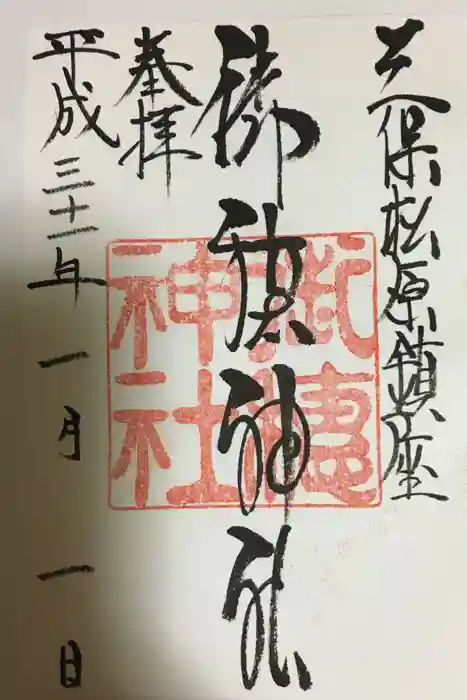 三保松原鎮座
御穂神社
奉拝
平成三十一年一月一日
御穗
神社